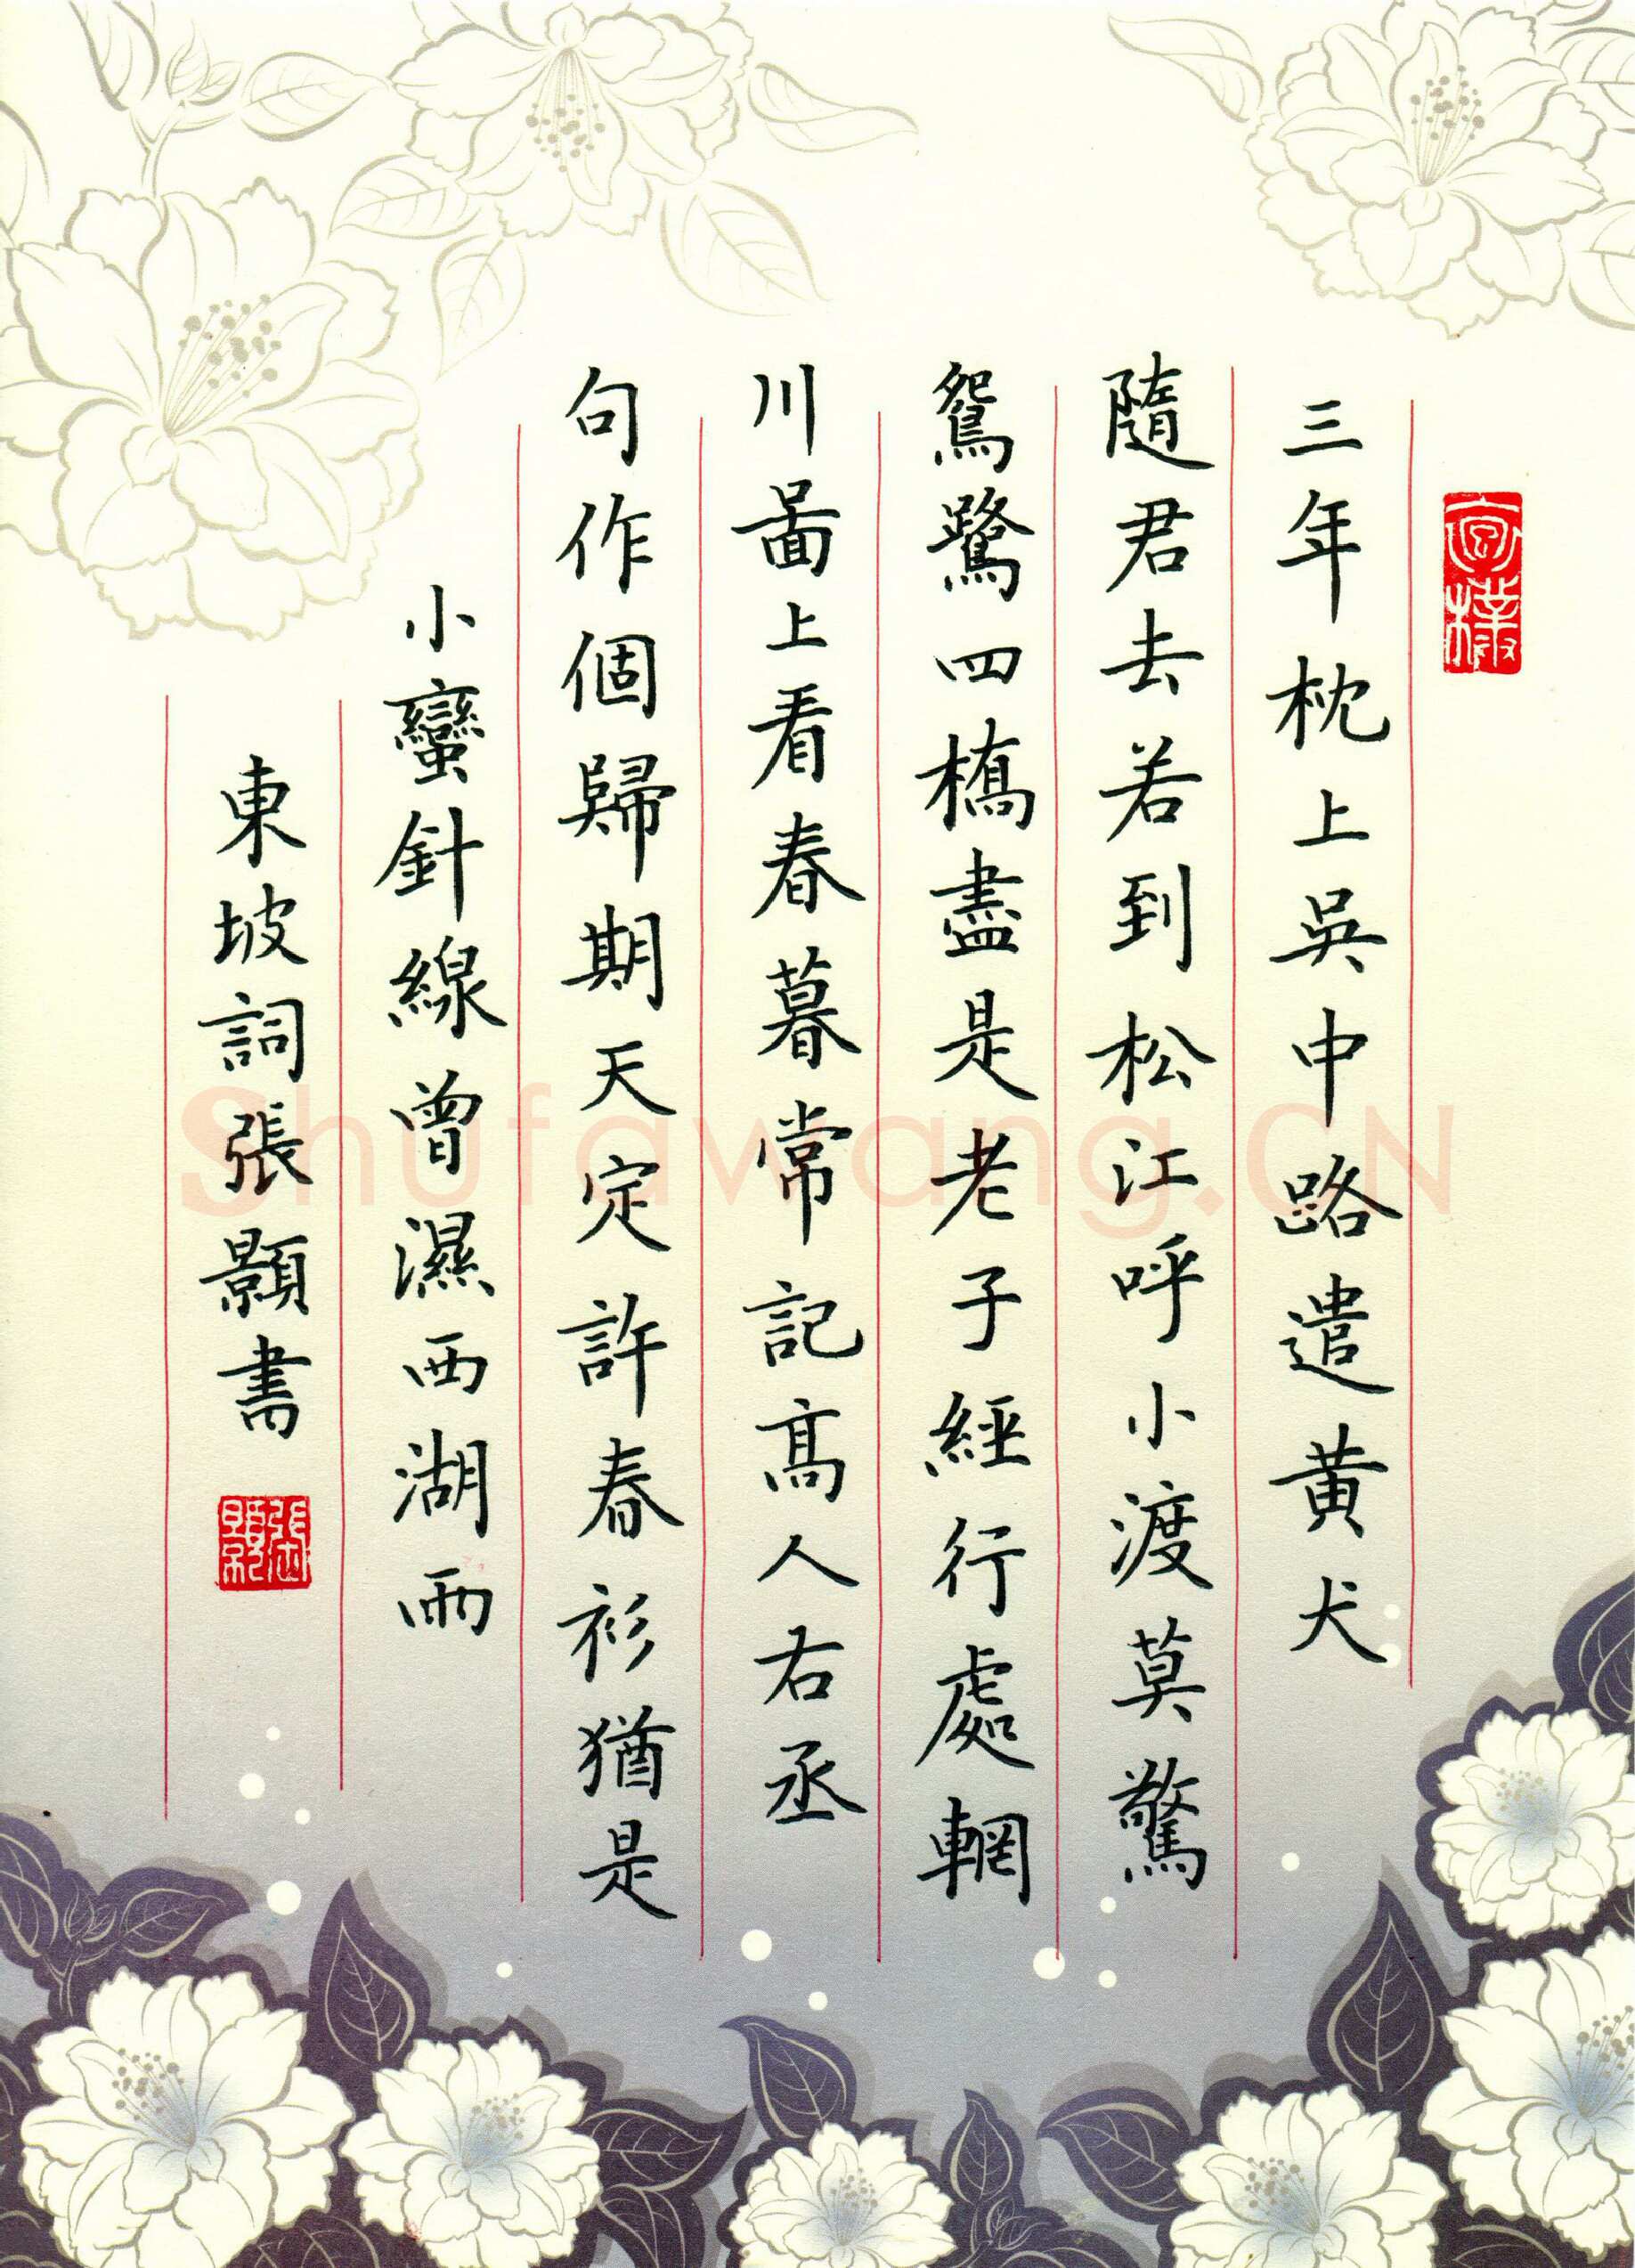 三年枕上吳中路遣黃犬
隨君去若到松江呼小渡莫驚
鴛鷺四橋盡是老子經行處輞
川啚上看春暮常記高人右丞
句作個歸期天定許春衫猶是
小蠻針線曾濕西湖雨
東坡詞張顥書
Shufawang.CN